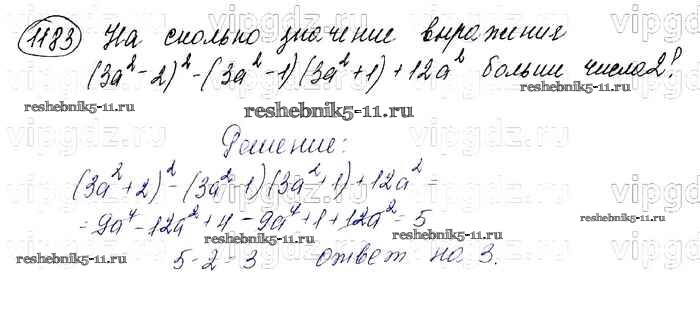 1183 На сколько значение выражения
(3a² - 2)² - (3a² - 1)(3a² + 1) + 12a² больше числа 2?
reshebnik5-11.ru reshebnik5-11.ru reshebnik5-11.ru
Решение:
(3a² + 2)² - (3a² - 1)(3a² + 1) + 12a² =
= 9a⁴ - 12a² + 4 - 9a⁴ + 1 + 12a² = 5
reshebnik5-11.ru reshebnik5-11.ru reshebnik5-11.ru
5 - 2 = 3 ответ на 3.